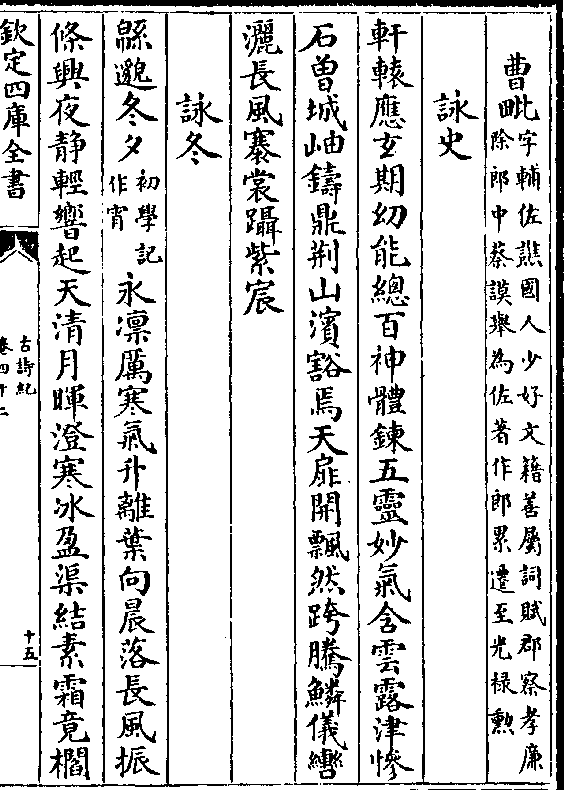 曹毗字輔佐譙國人少好文籍善屬詞賦郡察孝廉
除郎中蔡謨舉為佐著作郎累遷至光禄勲
詠史
軒轅應玄期幼能總百神體鍊五靈妙氣含雲露津慘
石曽城岫鑄鼎荆山濱豁焉天扉開飄然跨騰鱗儀轡
灑長風褰裳躡紫宸
詠冬
緜邈冬夕初學記作宵永凛厲寒氣升離葉向晨落長風振
條興夜静輕響起天清月暉澄寒冰盈渠結素霜竟櫩
欽定四庫全書
古詩紀
卷四十二
十五